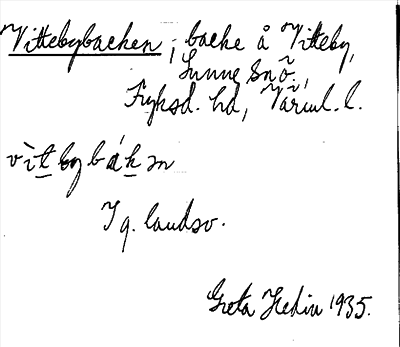 Vittebybacken; backe å Vitteby,
Sunne snő,
Fryksd. hd, Värml. l.
vìtbybákən
I g. landsv.
Greta Hedin 1935.